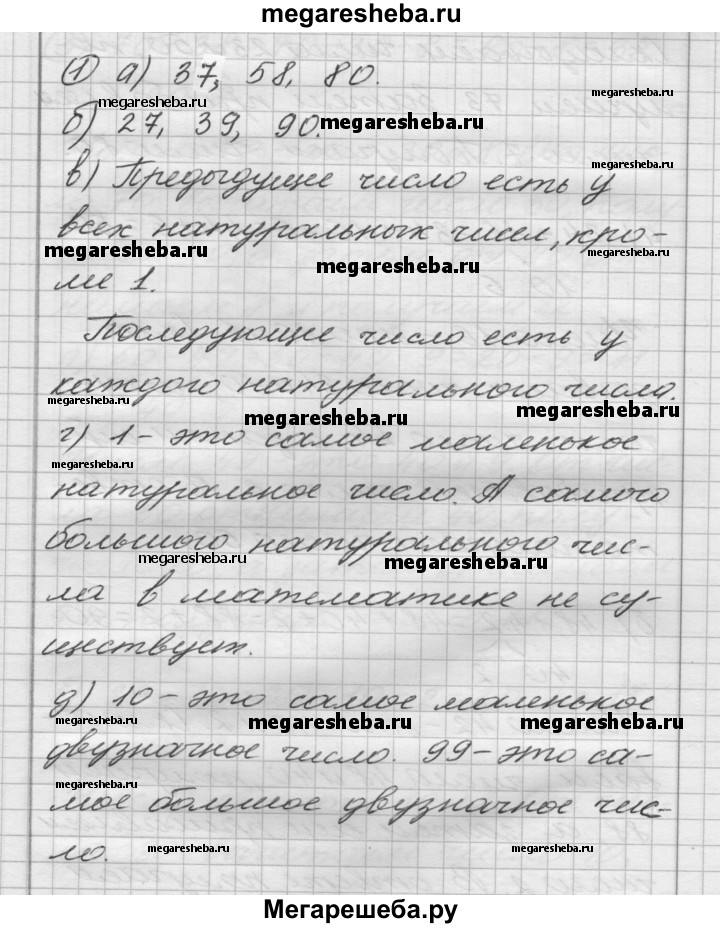 megaresheba.ru
① а) 37, 58, 80.
megaresheba.ru
б) 27, 39, 90.
megaresheba.ru
megaresheba.ru
в) Предыдущее число есть у
всех натуральных чисел, кро-
megaresheba.ru
megaresheba.ru
megaresheba.ru
ме 1.
Последующее число есть у
каждого натурального числа.
megaresheba.ru
megaresheba.ru
megaresheba.ru
г) 1 - это самое маленькое
натуральное число. А самого
большого натурального чис-
megaresheba.ru
megaresheba.ru
ла в математике не су-
ществует.
д) 10 - это самое маленькое
megaresheba.ru
megaresheba.ru
megaresheba.ru
двузначное число. 99 - это са-
megaresheba.ru
мое большое двузначное чис-
ло.
megaresheba.ru
megaresheba.ru
Мегарешеба.ру